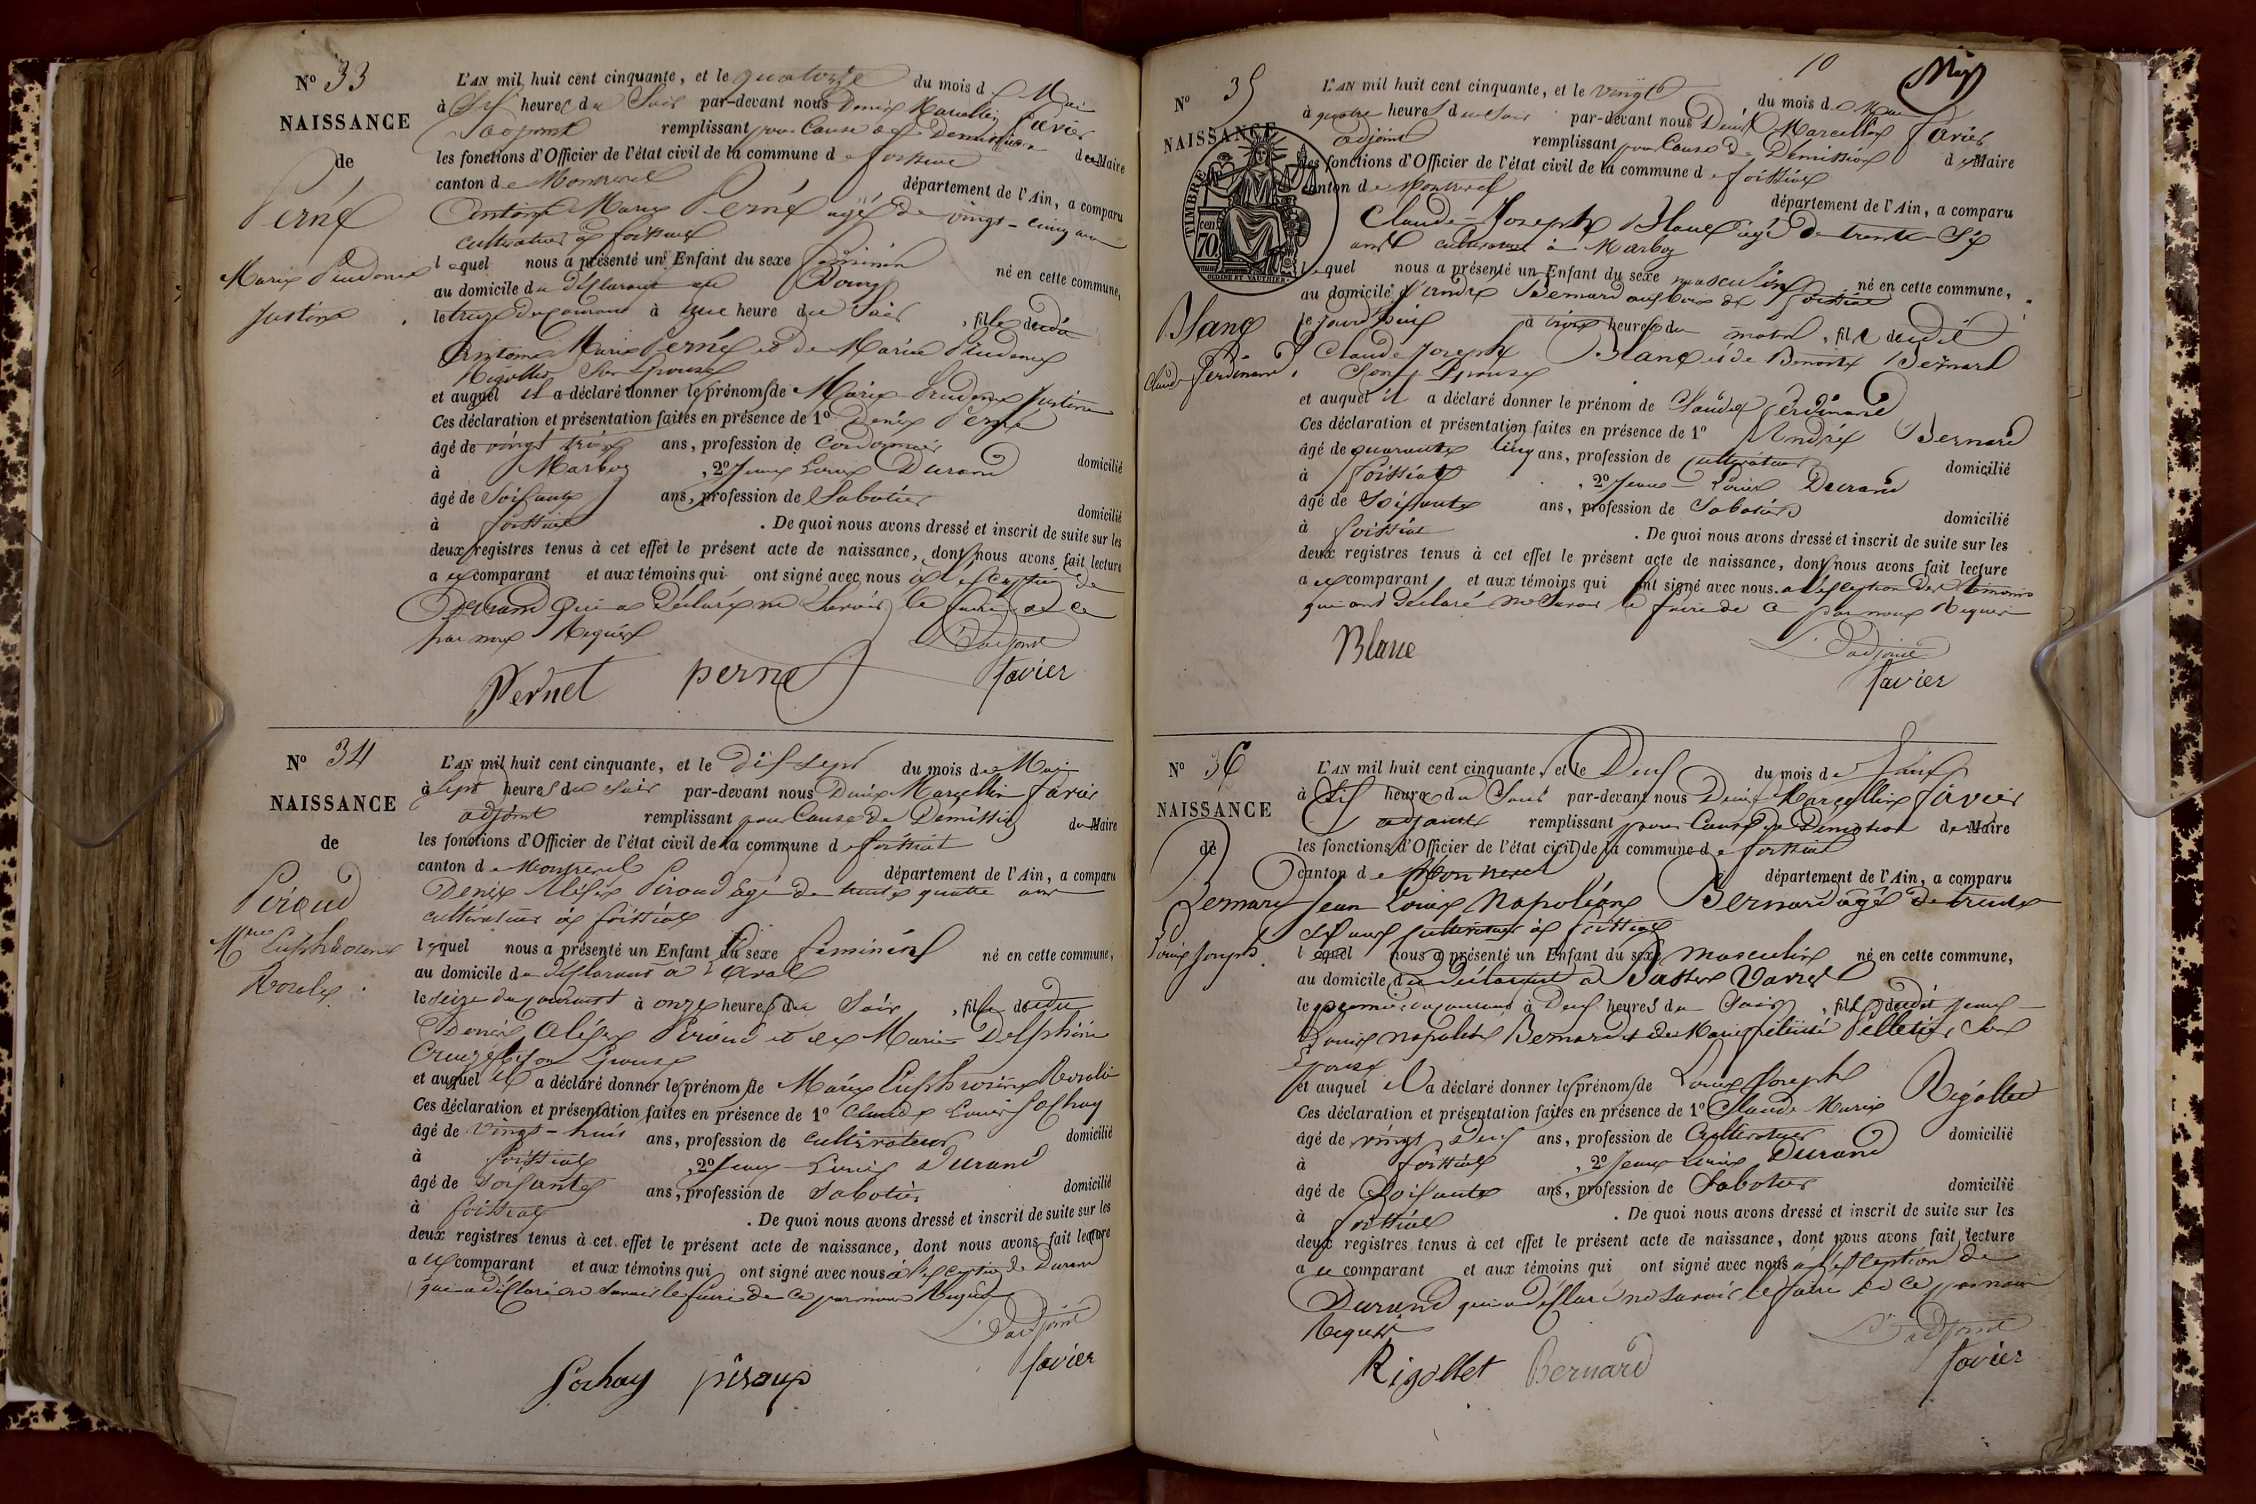 N° 33
NAISSANCE
de
Perné
Marie Prudence
Justine
L'AN mil huit cent cinquante, et le quatorze du mois de Mai
à Six heures du Soir par-devant nous Denis Marcellin Favier
adjoint remplissant pour Cause de Demission de Maire
les fonctions d'Officier de l'état civil de la commune de foissiat
canton de Montrevel département de l'Ain, a comparu
Antoine Marie Perné agé de vingt-cinq ans
cultivateur à foissiat
lequel nous a présenté un Enfant du sexe feminin né en cette commune,
au domicile du déclarant au Bourg
le treize du courant à une heure du Soir, fille dudit
Antoine Marie Perné et de Marie Prudence
Rigollet Son Epouse
et auquel il a déclaré donner les prénoms de Marie Prudence Justine
Ces déclaration et présentation faites en présence de 1° Denis Perné
âgé de vingt trois ans, profession de Cordonnier domicilié
à Marboz, 2° Jean Louis Durand
âgé de Soixante ans, profession de Sabotier domicilié
à foissiat. De quoi nous avons dressé et inscrit de suite sur les
deux registres tenus à cet effet le présent acte de naissance, dont nous avons fait lecture
a ce comparant et aux témoins qui ont signé avec nous à l'exception de
Durand qui a déclaré ne Savoir le faire de ce
par nous Requis
L'adjoint
Pernet perné favier
N° 34
NAISSANCE
de
Péroud
Mrie Euphrosine
Rosalie
L'AN mil huit cent cinquante, et le dix-sept du mois de Mai
à Sept heures du Soir par-devant nous Denis Marcellin Favier
adjoint remplissant pour Cause de Demission de Maire
les fonctions d'Officier de l'état civil de la commune de foissiat
canton de Montrevel département de l'Ain, a comparu
Denis Aléxis Péroud agé de trente quatre ans
cultivateur à foissiat
lequel nous a présenté un Enfant du sexe féminin né en cette commune,
au domicile du déclarant a
le seize du courant à onze heures du Soir, fille dudit
Denis Aléxis Péroud et de Marie Delphine
son Epouse
et auquel il a déclaré donner les prénoms de Marie Euphrosine Rosalie
Ces déclaration et présentation faites en présence de 1° Claude Louis Sochay
âgé de vingt-huit ans, profession de cultivateur domicilié
à foissiat, 2° Jean Louis Durand
âgé de Soixante ans, profession de Sabotier domicilié
à foissiat. De quoi nous avons dressé et inscrit de suite sur les
deux registres tenus à cet effet le présent acte de naissance, dont nous avons fait lecture
a ce comparant et aux témoins qui ont signé avec nous à l'exception de Durand
qui a déclaré ne Savoir le faire de ce par nous Requis
L'adjoint
Sochay péroud favier
10
N° 35
NAISSANCE
TIMBRE
70 cen.
Blanc
Claude Ferdinand
L'AN mil huit cent cinquante, et le vingt du mois de Mai
à quatre heures du Soir par-devant nous Denis Marcellin Favier
adjoint remplissant pour Cause de Demission de Maire
les fonctions d'Officier de l'état civil de la commune de foissiat
canton de Montrevel département de l'Ain, a comparu
Claude-Joseph Blanc agé de trente-Six
ans cultivateur à Marboz
lequel nous a présenté un Enfant du sexe masculin né en cette commune,
au domicile d'andré Bernard aux bois de foissiat
le jourd'hui à trois heures du matin, fils dudit
Claude Joseph Blanc et de Benoite Bernard
Son Epouse
et auquel il a déclaré donner le prénom de Claude Ferdinand
Ces déclaration et présentation faites en présence de 1° André Bernard
âgé de quarante cinq ans, profession de cultivateur domicilié
à foissiat, 2° Jean-Louis Durand
âgé de Soixante ans, profession de Sabotier domicilié
à foissiat. De quoi nous avons dressé et inscrit de suite sur les
deux registres tenus à cet effet le présent acte de naissance, dont nous avons fait lecture
a ce comparant et aux témoins qui ont signé avec nous a l'exception des témoins
qui ont déclaré ne Savoir le faire de ce par nous Requis
L'adjoint
Blanc favier
N° 36
NAISSANCE
de
Bernard
Louis Joseph
L'AN mil huit cent cinquante, et le Deux du mois de Juin
à Six heures du Soir par-devant nous Denis Marcellin Favier
adjoint remplissant pour Cause de Demission de Maire
les fonctions d'Officier de l'état civil de la commune de foissiat
canton de Montrevel département de l'Ain, a comparu
Jean Louis Napoléon Bernard âgé de trente
Six ans cultivateur à foissiat
lequel nous a présenté un Enfant du sexe masculin né en cette commune,
au domicile du déclarant a
le premier du courant à Deux heures du Soir, fils dudit Jean
Louis Napoléon Bernard et de Marie félicité Pelletier Son
Epouse
et auquel il a déclaré donner les prénoms de Louis Joseph
Ces déclaration et présentation faites en présence de 1° Claude Marie Rigollet
âgé de vingt Deux ans, profession de Cultivateur domicilié
à foissiat, 2° Jean Louis Durand
âgé de Soixante ans, profession de Sabotier domicilié
à foissiat. De quoi nous avons dressé et inscrit de suite sur les
deux registres tenus à cet effet le présent acte de naissance, dont nous avons fait lecture
a ce comparant et aux témoins qui ont signé avec nous à l'exception de
Durand qui a déclaré ne Savoir le faire de ce par nous
Requis
L'adjoint
Rigollet Bernard favier